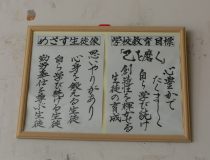 学校教育目標
心豊かで
たくましく
自ら学び続け
創造性を発揮する
生徒の育成
めざす生徒像
思いやりがあり
心身を鍛える生徒
自ら学び続ける生徒
勤労奉仕を尊ぶ生徒